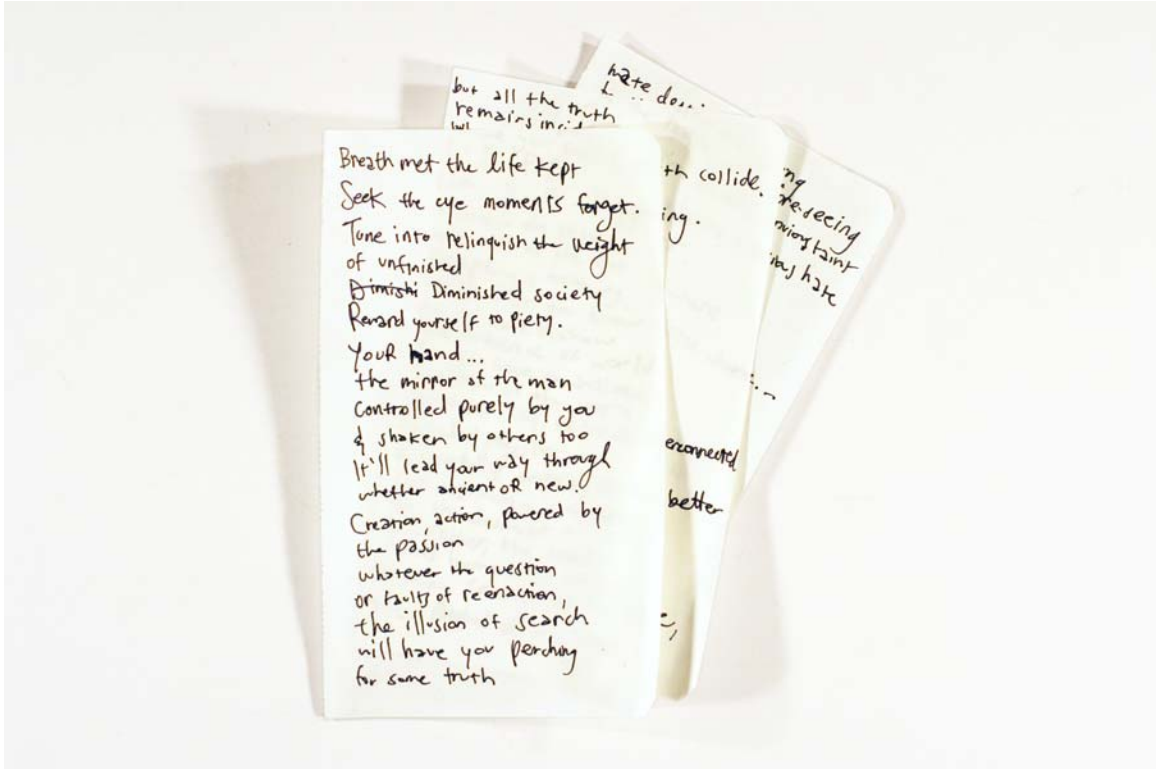 Breath met the life kept
Seek the eye moments forget.
Tune into relinquish the weight
of unfinished
Dimishi Diminished society
Reward yourself to piety.
YouR hand...
the mirror of the man
controlled purely by you
& shaken by others too
It'll lead your way through
whether ancient oR new.
Creation, action, powered by
the passion
whatever the question
or faults of reenaction,
the illusion of search
will have you perching
for some truth
but all the truth
remains
th collide.
ing.
erconnected
better
hate
ng
re-seeing
taint
hate